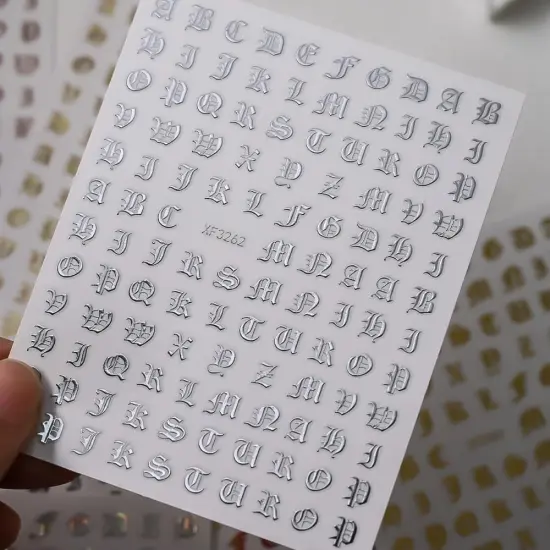 A B C D E F G D A B
H I J K L M N I H I
O P Q R S T U R O P
V W W X Y Z M V W
H I J K L F G D H I
A B C XF3262 M N A A B
H I J R S M N I H I
O P Q K L T U R O P
V W W X Y Z M V W
H I Q R L M N A H I
P J K S T U R O P
P J K S T U R O P